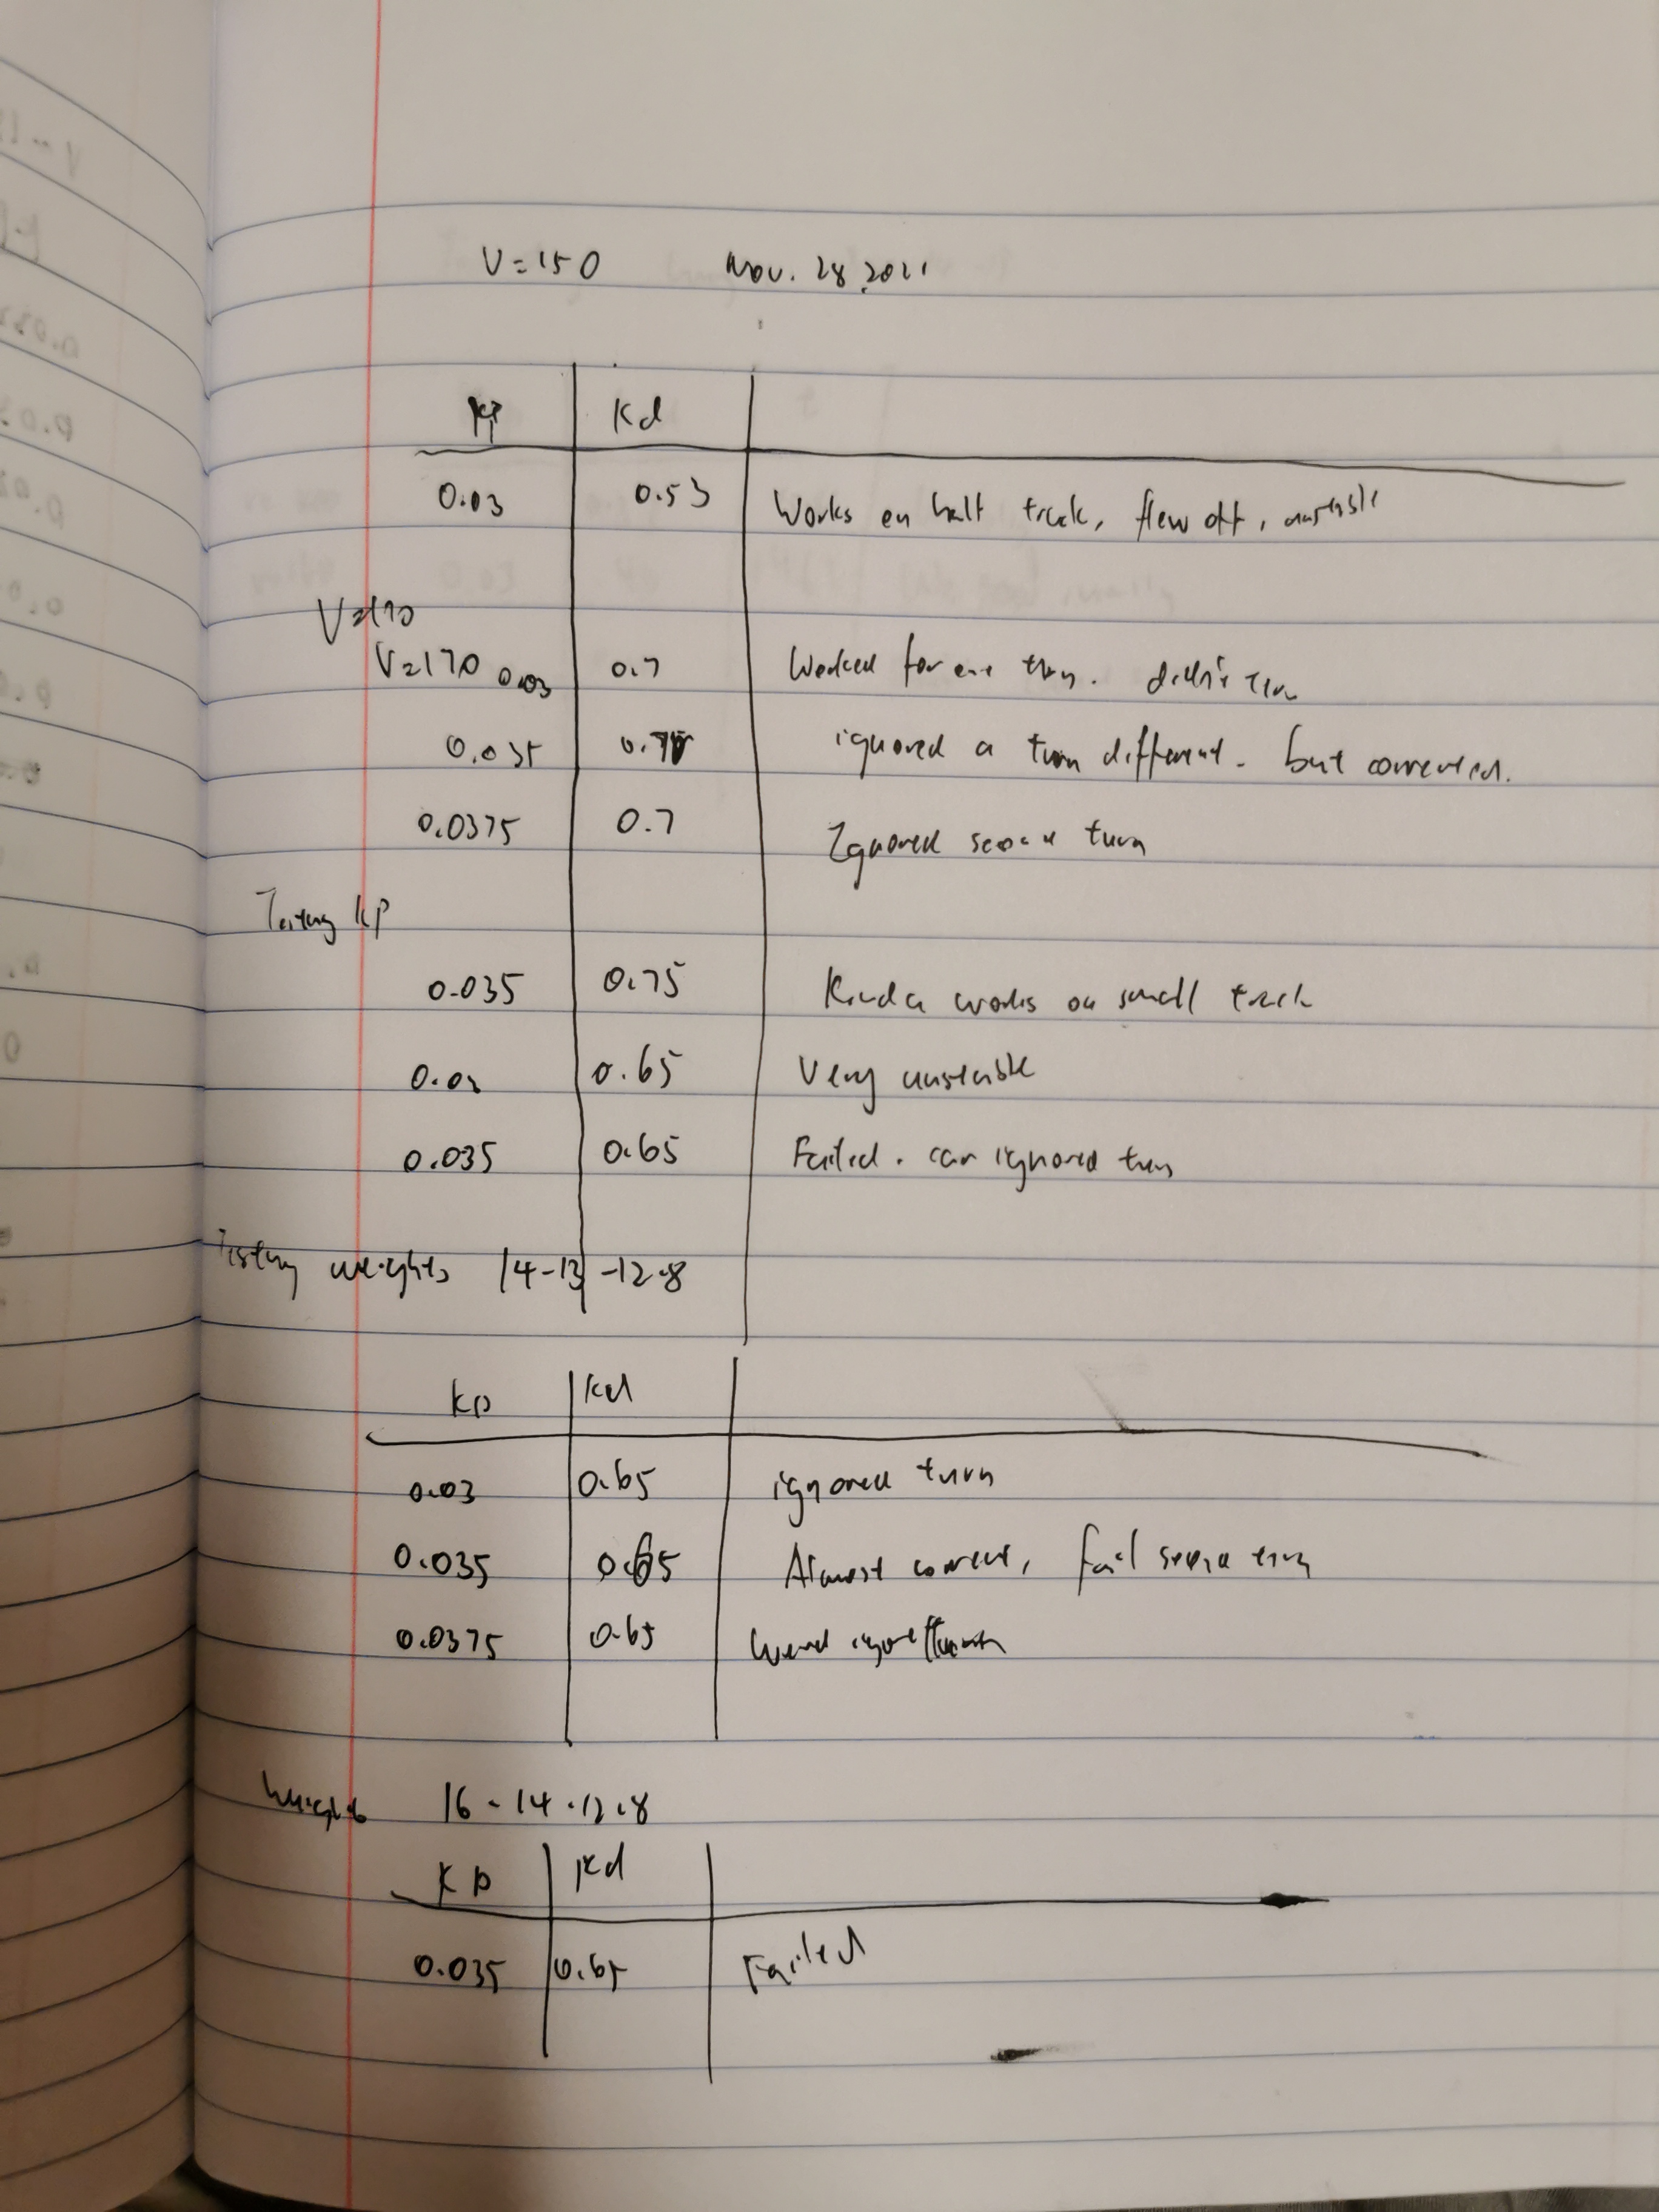 V=150 Nov. 28, 2021
Kp Kd
0.03 0.53 Works on half track, flew off, unstable
V=170
V=170 0.03 0.7 Worked for one turn. didn't turn
0.035 ignored a turn different. but corrected.
0.0375 0.7 Ignored second turn
Testing KP
0.035 0.75 Kinda works on small track
0.03 0.65 Very unstable
0.035 0.65 Failed. car ignored turn
Testing weights 14-13-12-8
Kp Kd
0.03 0.65 ignored turn
0.035 0.65 Almost correct, fail second turn
0.0375 0.65
Weights 16-14-12-8
Kp Kd
0.035 0.65 Failed